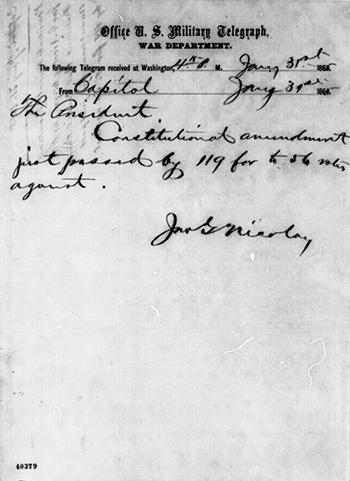 Office U. S. Military Telegraph,
WAR DEPARTMENT.
The following Telegram received at Washington, P. M. Jany 31st 186
From Capitol Jany 31st 186
The President.
Constitutional amendment
just passed by 119 for to 56 votes
against.
Jno G Nicolay
40379